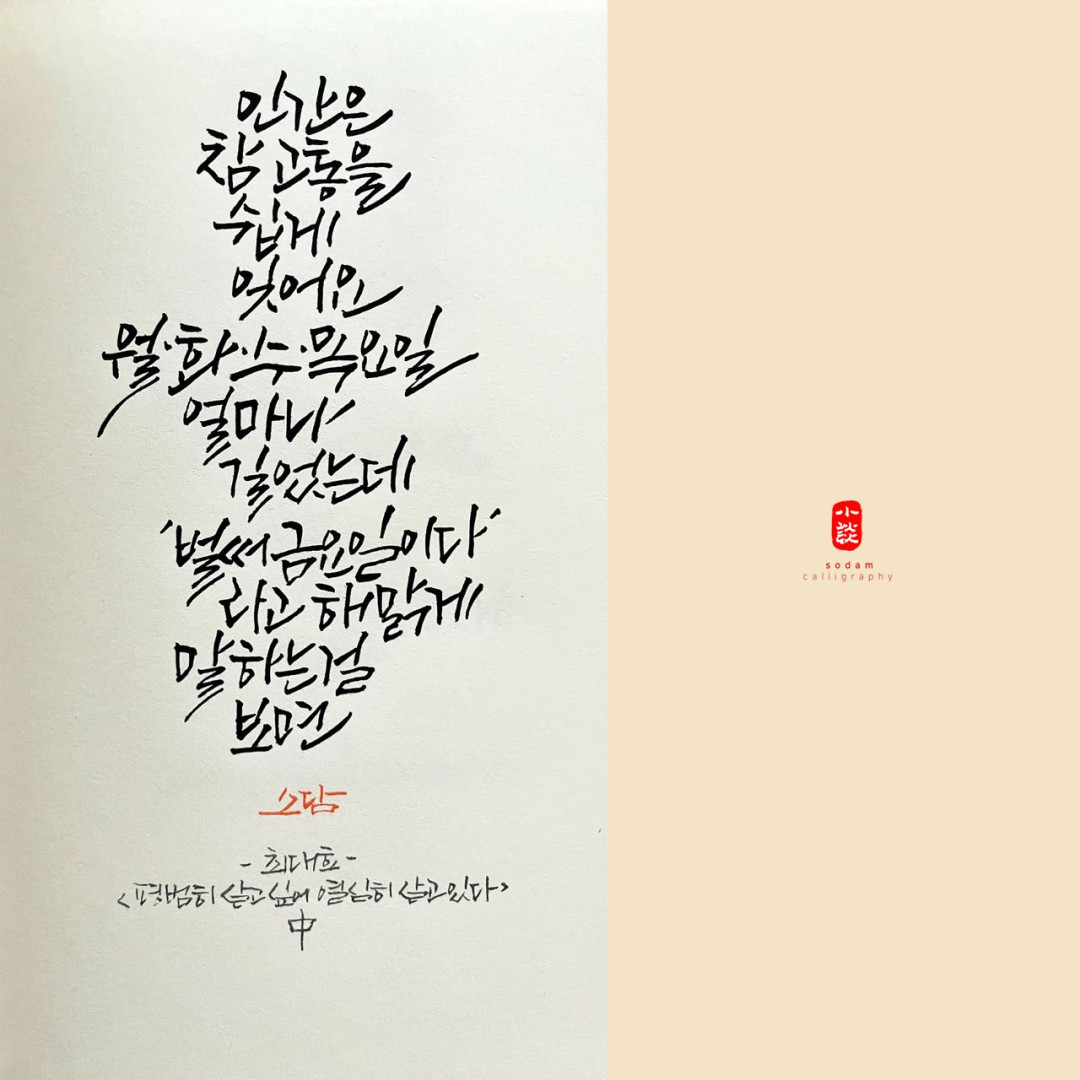 인간은
참 고통을
쉽게
잊어요
월·화·수·목요일
얼마나
길었는데
'벌써 금요일이다'
라고 해맑게
말하는걸
보면
소담
- 최대호 -
<평범히 살고 싶어 열심히 살고 있다>
中
小談
sodam
calligraphy